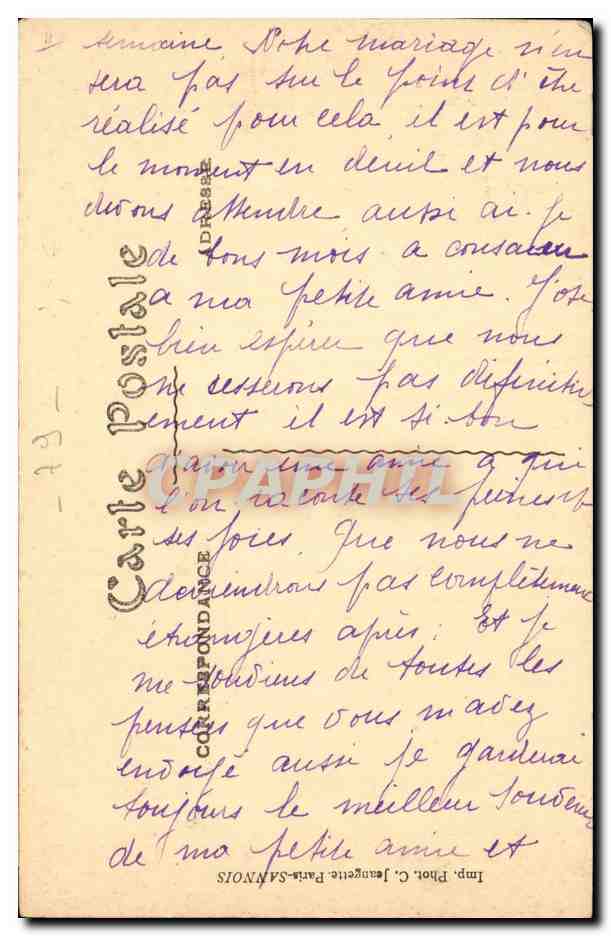 semaine Notre mariage n'en
sera pas sur le point d'être
réalisé pour cela, il est pour
le moment en deuil et nous
devons attendre aussi ai-je
de bons mois a consacrer
a ma petite amie. J'ose
bien espérer que nous
ne cesserons pas définitiv
ement il est si bon
d'avoir une amie a qui
l'on raconte ses peines et
ses joies. Que nous ne
deviendrons pas complètement
étrangères après; Et je
me souviens de toutes les
pensées que vous m'avez
envoyé aussi je garderai
toujours le meilleur souvenir
de ma petite amie et
Carte Postale
CORRESPONDANCE
ADRESSE
Imp. Phot. C. Jeangette. Paris-SANNOIS
- 79 -
CPAPHIL